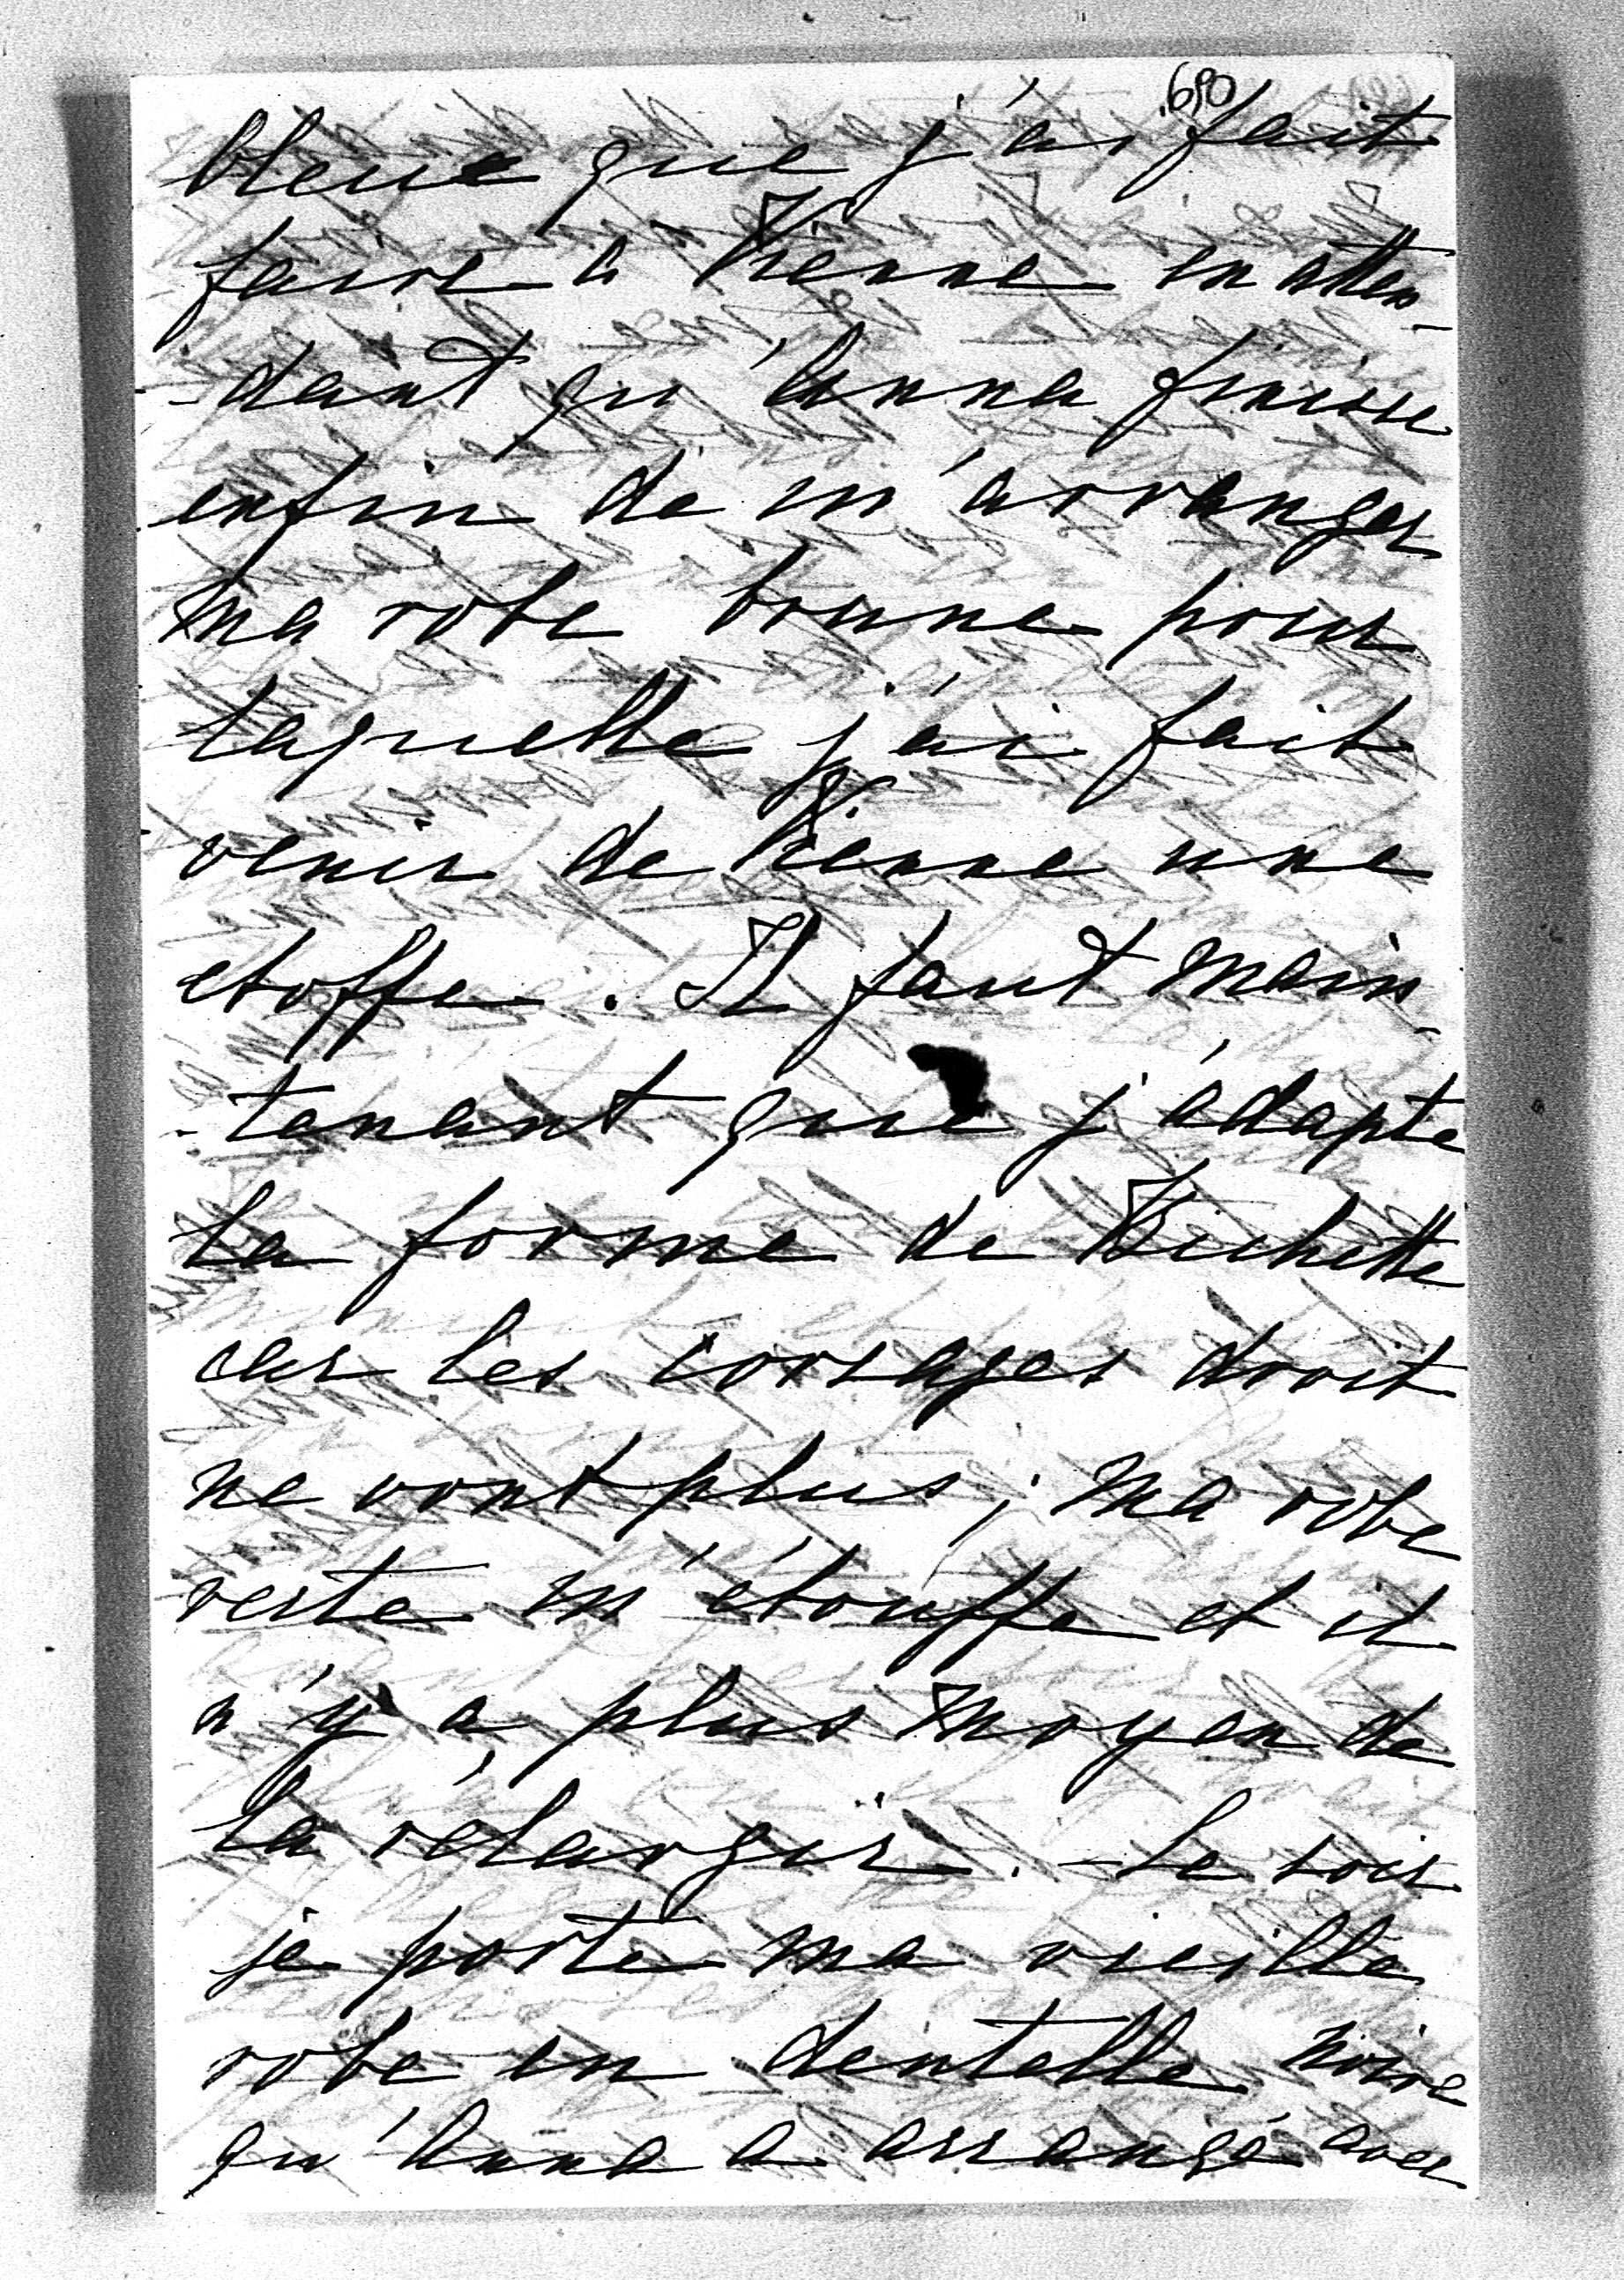 690
bleue que j'ai fait
faire à Vienne en atten-
-dant qu'Anna finisse
enfin de m'arranger
ma robe brune pour
laquelle j'ai fait
venir de Vienne une
etoffe. Il faut main-
-tenant que j'adapte
la forme de Bichette
car les corsages droit
ne vont plus; ma robe
verte m'étouffe et il
n'y a plus moyen de
la rélargir. - Le soir
je porte ma vieille
robe en dentelle noire
qu'Anna a arrangé avec